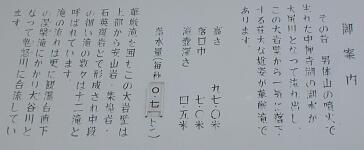 御案内
その昔 男体山の噴火で
生れた中禅寺湖の湖水が
大尻川となって流れ出し
この大岩壁から一気に落下
する壮大な雄姿が華厳滝で
あります
高さ 九七・〇米
落口巾 七・〇米
滝壺深さ 四・五米
落水量(毎秒 〇・七 トン)
華厳滝を囲むこの大岩壁は
上部から安山岩 集塊岩
石英斑岩とで形成され中段
の細い滝の数々は十二滝と
呼ばれています
滝の流れは更に観瀑台直下
の涅槃滝にかかり大谷川と
なって鬼怒川に合流してい
ます